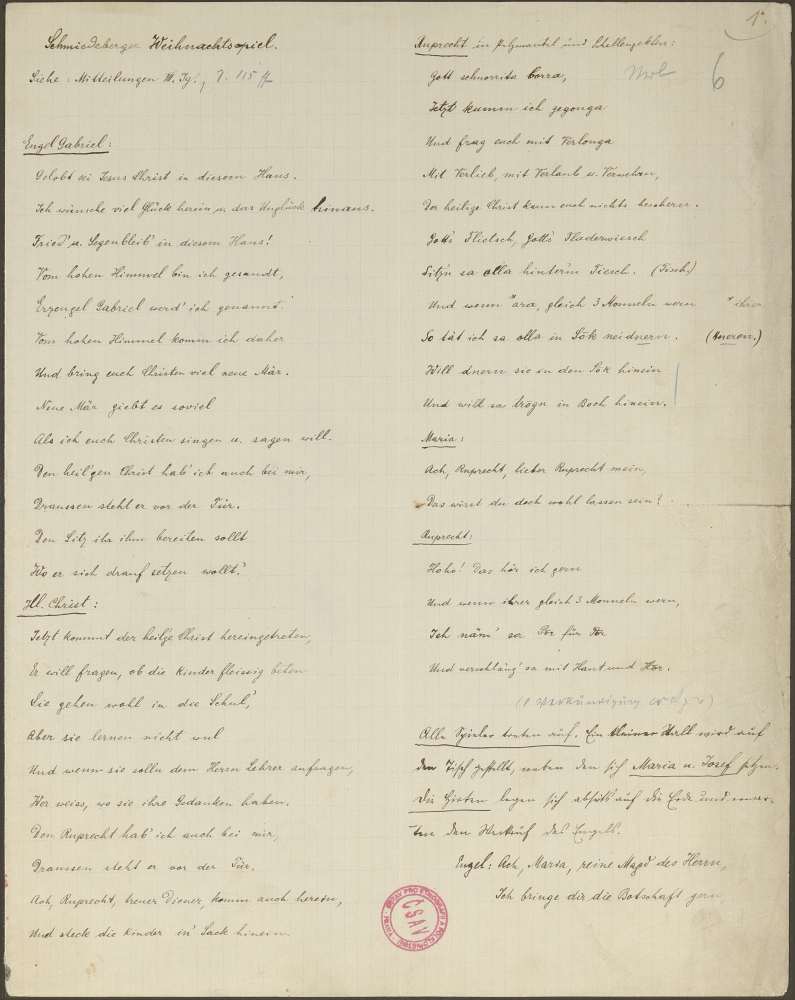 Schmiedeberger Weihnachtsspiel.
Siehe: Mitteilungen III. Jg., S. 115 ff
Engel Gabriel:
Gelobt sei Jesus Christ in diesem Haus.
Ich wünsche viel Glück herein u. das Unglück hinaus.
Fried' u. Segen bleib' in diesem Haus!
Vom hohen Himmel bin ich gesandt,
Erzengel Gabriel werd' ich genannt.
Vom hohen Himmel komm ich daher
Und bring euch Christen viel neue Mär.
Neue Mär giebt es soviel
Als ich euch Christen singen u. sagen will.
Den heil'gen Christ hab' ich auch bei mir,
Draussen steht er vor der Tür.
Den Sitz ihr ihm bereiten sollt
Wo er sich drauf setzen wollt'.
Hl. Christ:
Jetzt kommt der heilge Christ hereingetreten,
Er will fragen, ob die Kinder fleissig beten
Sie gehen wohl in die Schul',
Aber sie lernen nicht wul
Und wenn sie solln dem Herrn Lehrer aufsagen,
Wer weiss, wo sie ihre Gedanken haben.
Den Ruprecht hab' ich auch bei mir,
Draussen steht er vor der Tür.
Ach, Ruprecht, treuer Diener, komm auch herein,
Und steck die Kinder in' Sack hinein.
1.
6
Ruprecht in Pelzmantel und Schellengeklirr:
Gott schnorrita
Jetzt kumm ich gegonga
Und frag euch mit Verlonga
Mit Verlieb, mit Verlaub u.
Der heilige Christ kann euch nichts bescheren.
Gott's Flietsch, Gott's Fladerwiesch
Sitz'n sa olla hinter'm Tiesch. (Tisch.)
Und wenn "ara, gleich 3 Monneln wern " ihrer
So tät ich sa olla in Sök neidnern.
Will dnern sie in den Sök hinein
Und will sa trögn in Boch hinein.
Maria:
Ach, Ruprecht, lieber Ruprecht mein,
Das wirst du doch wohl lassen sein?
Ruprecht:
Hoho! Das hör ich gern
Und wenn ihrer gleich 3 Monneln wern,
Ich näm' sa Por für Por
Und verschläng' sa mit Haut und Hor.
Alle Spieler treten auf. Ein kleiner Stuhl wird auf
den Tisch gestellt, neben den sich Maria u. Josef setzen.
Die Hirten legen sich abseits auf die Erde und erwar-
ten den des Engels.
Engel: Ach, Maria, reine Magd des Herrn,
Ich bringe dir die Botschaft gern
ČSAV